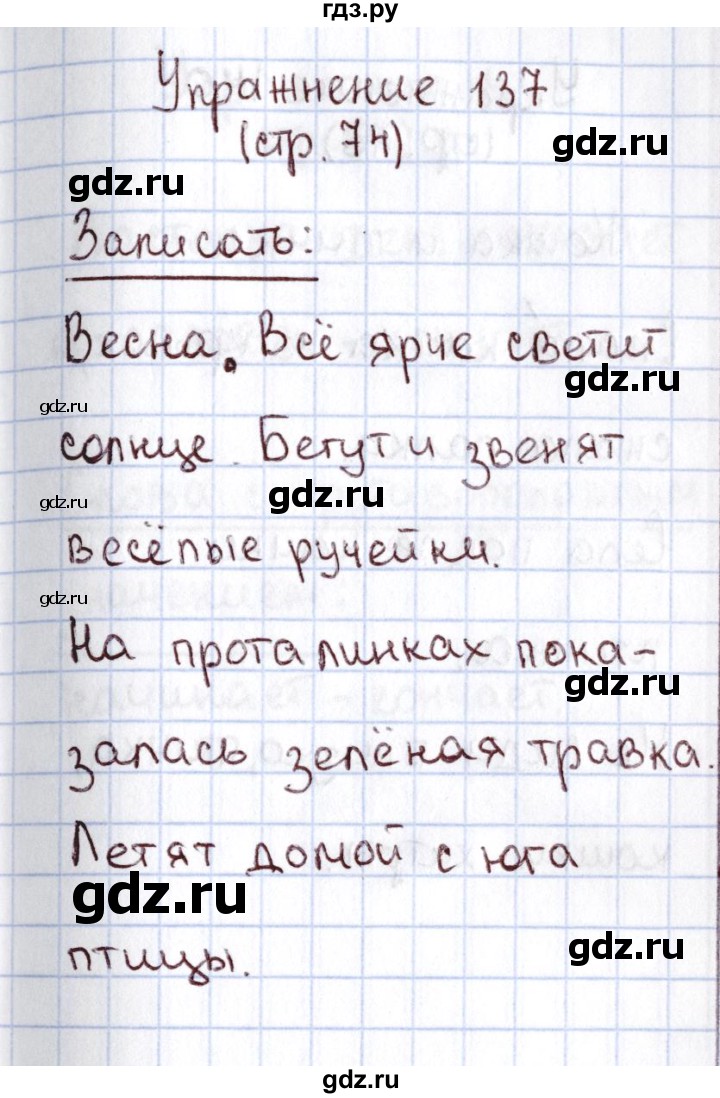 гдз.ру
Упражнение 137
gdz.ru
(стр. 74)
gdz.ru
Записать:
Весна. Всё ярче светит
gdz.ru
gdz.ru
солнце. Бегут и звенят
gdz.ru
gdz.ru
весёлые ручейки.
gdz.ru
На проталинках пока-
gdz.ru
залась зелёная травка.
Летят домой с юга
gdz.ru
gdz.ru
птицы.
gdz.ru